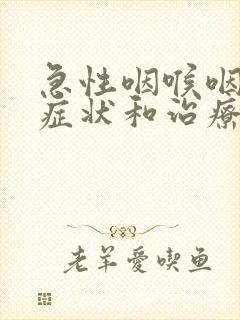 急性咽喉咽
症状和治疗
老羊愛喫鱼